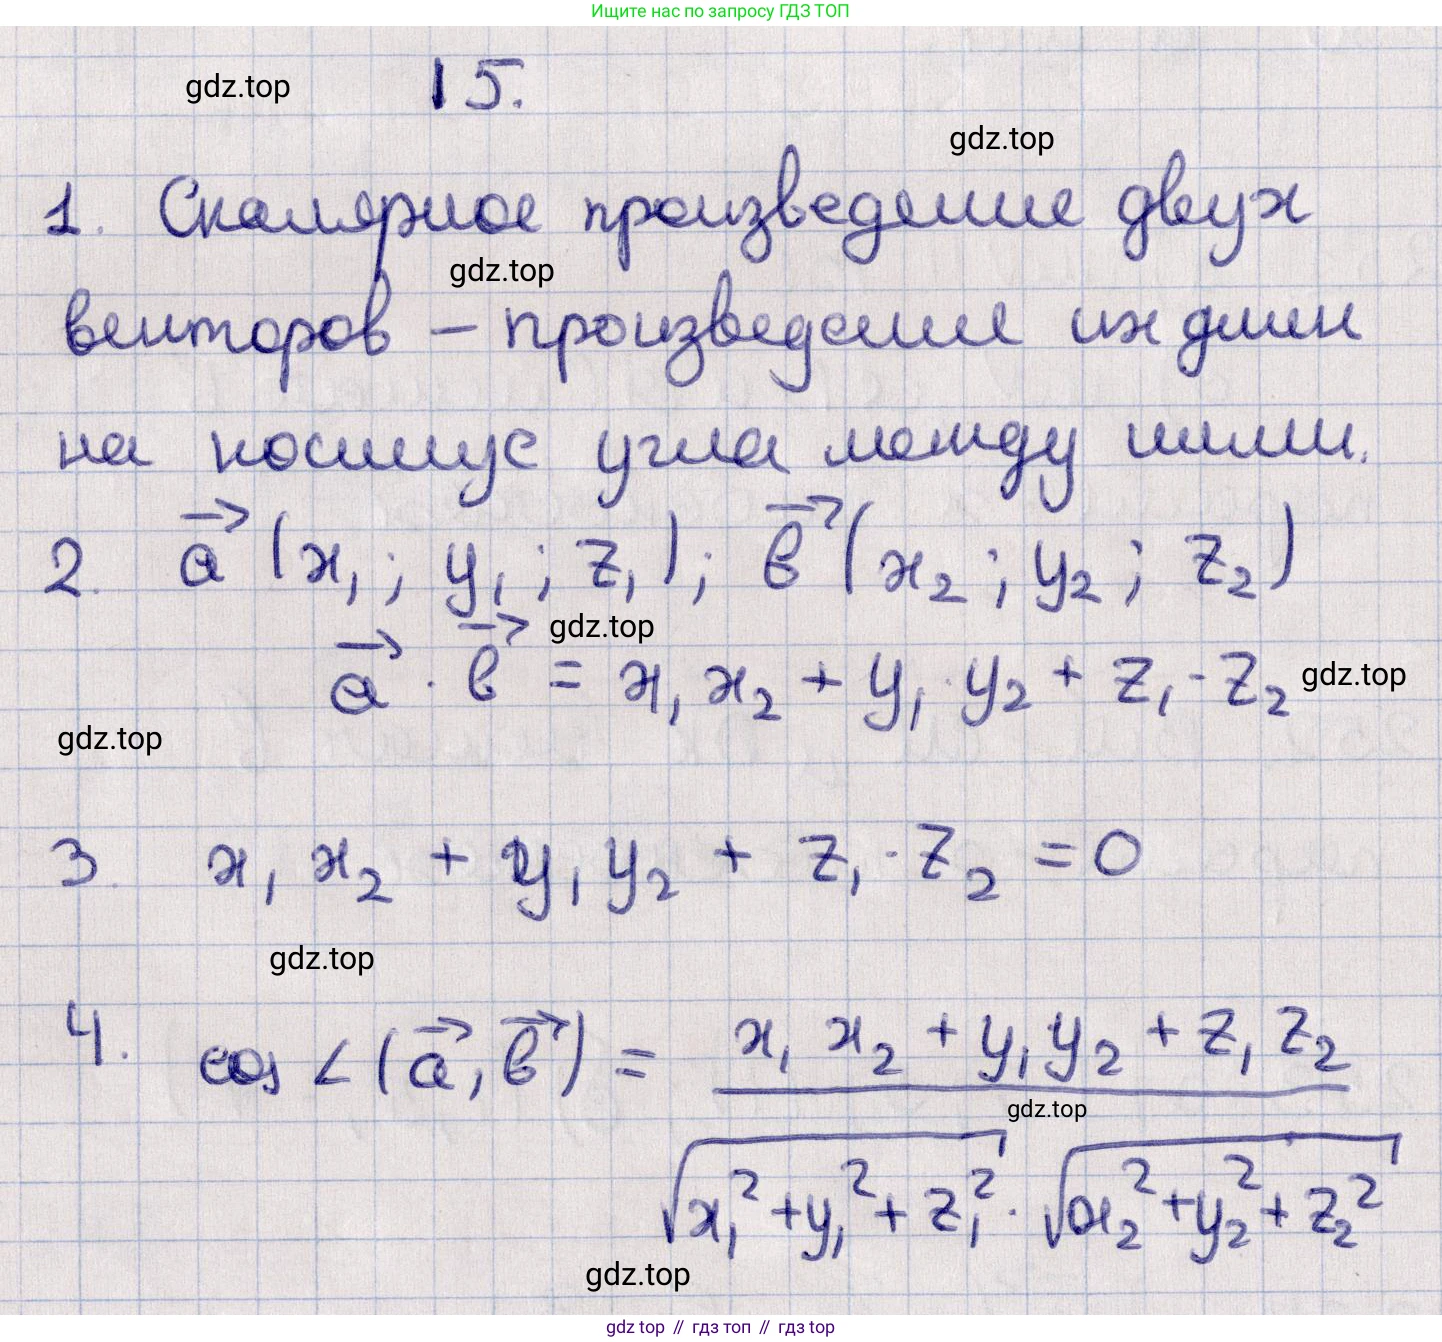 Ищите нас по запросу ГДЗ ТОП
gdz.top
15.
gdz.top
1. Скалярное произведение двух
gdz.top
векторов – произведение их длин
на косинус угла между ними.
2. a⃗ (x₁; y₁; z₁); b⃗ (x₂; y₂; z₂)
gdz.top
a⃗ · b⃗ = x₁ x₂ + y₁ · y₂ + z₁ · z₂
gdz.top
gdz.top
3. x₁ x₂ + y₁ y₂ + z₁ · z₂ = 0
gdz.top
4. cos ∠ (a⃗, b⃗) = x₁ x₂ + y₁ y₂ + z₁ z₂
gdz.top
√x₁² + y₁² + z₁² · √x₂² + y₂² + z₂²
gdz.top
gdz top // гдз топ // гдз top